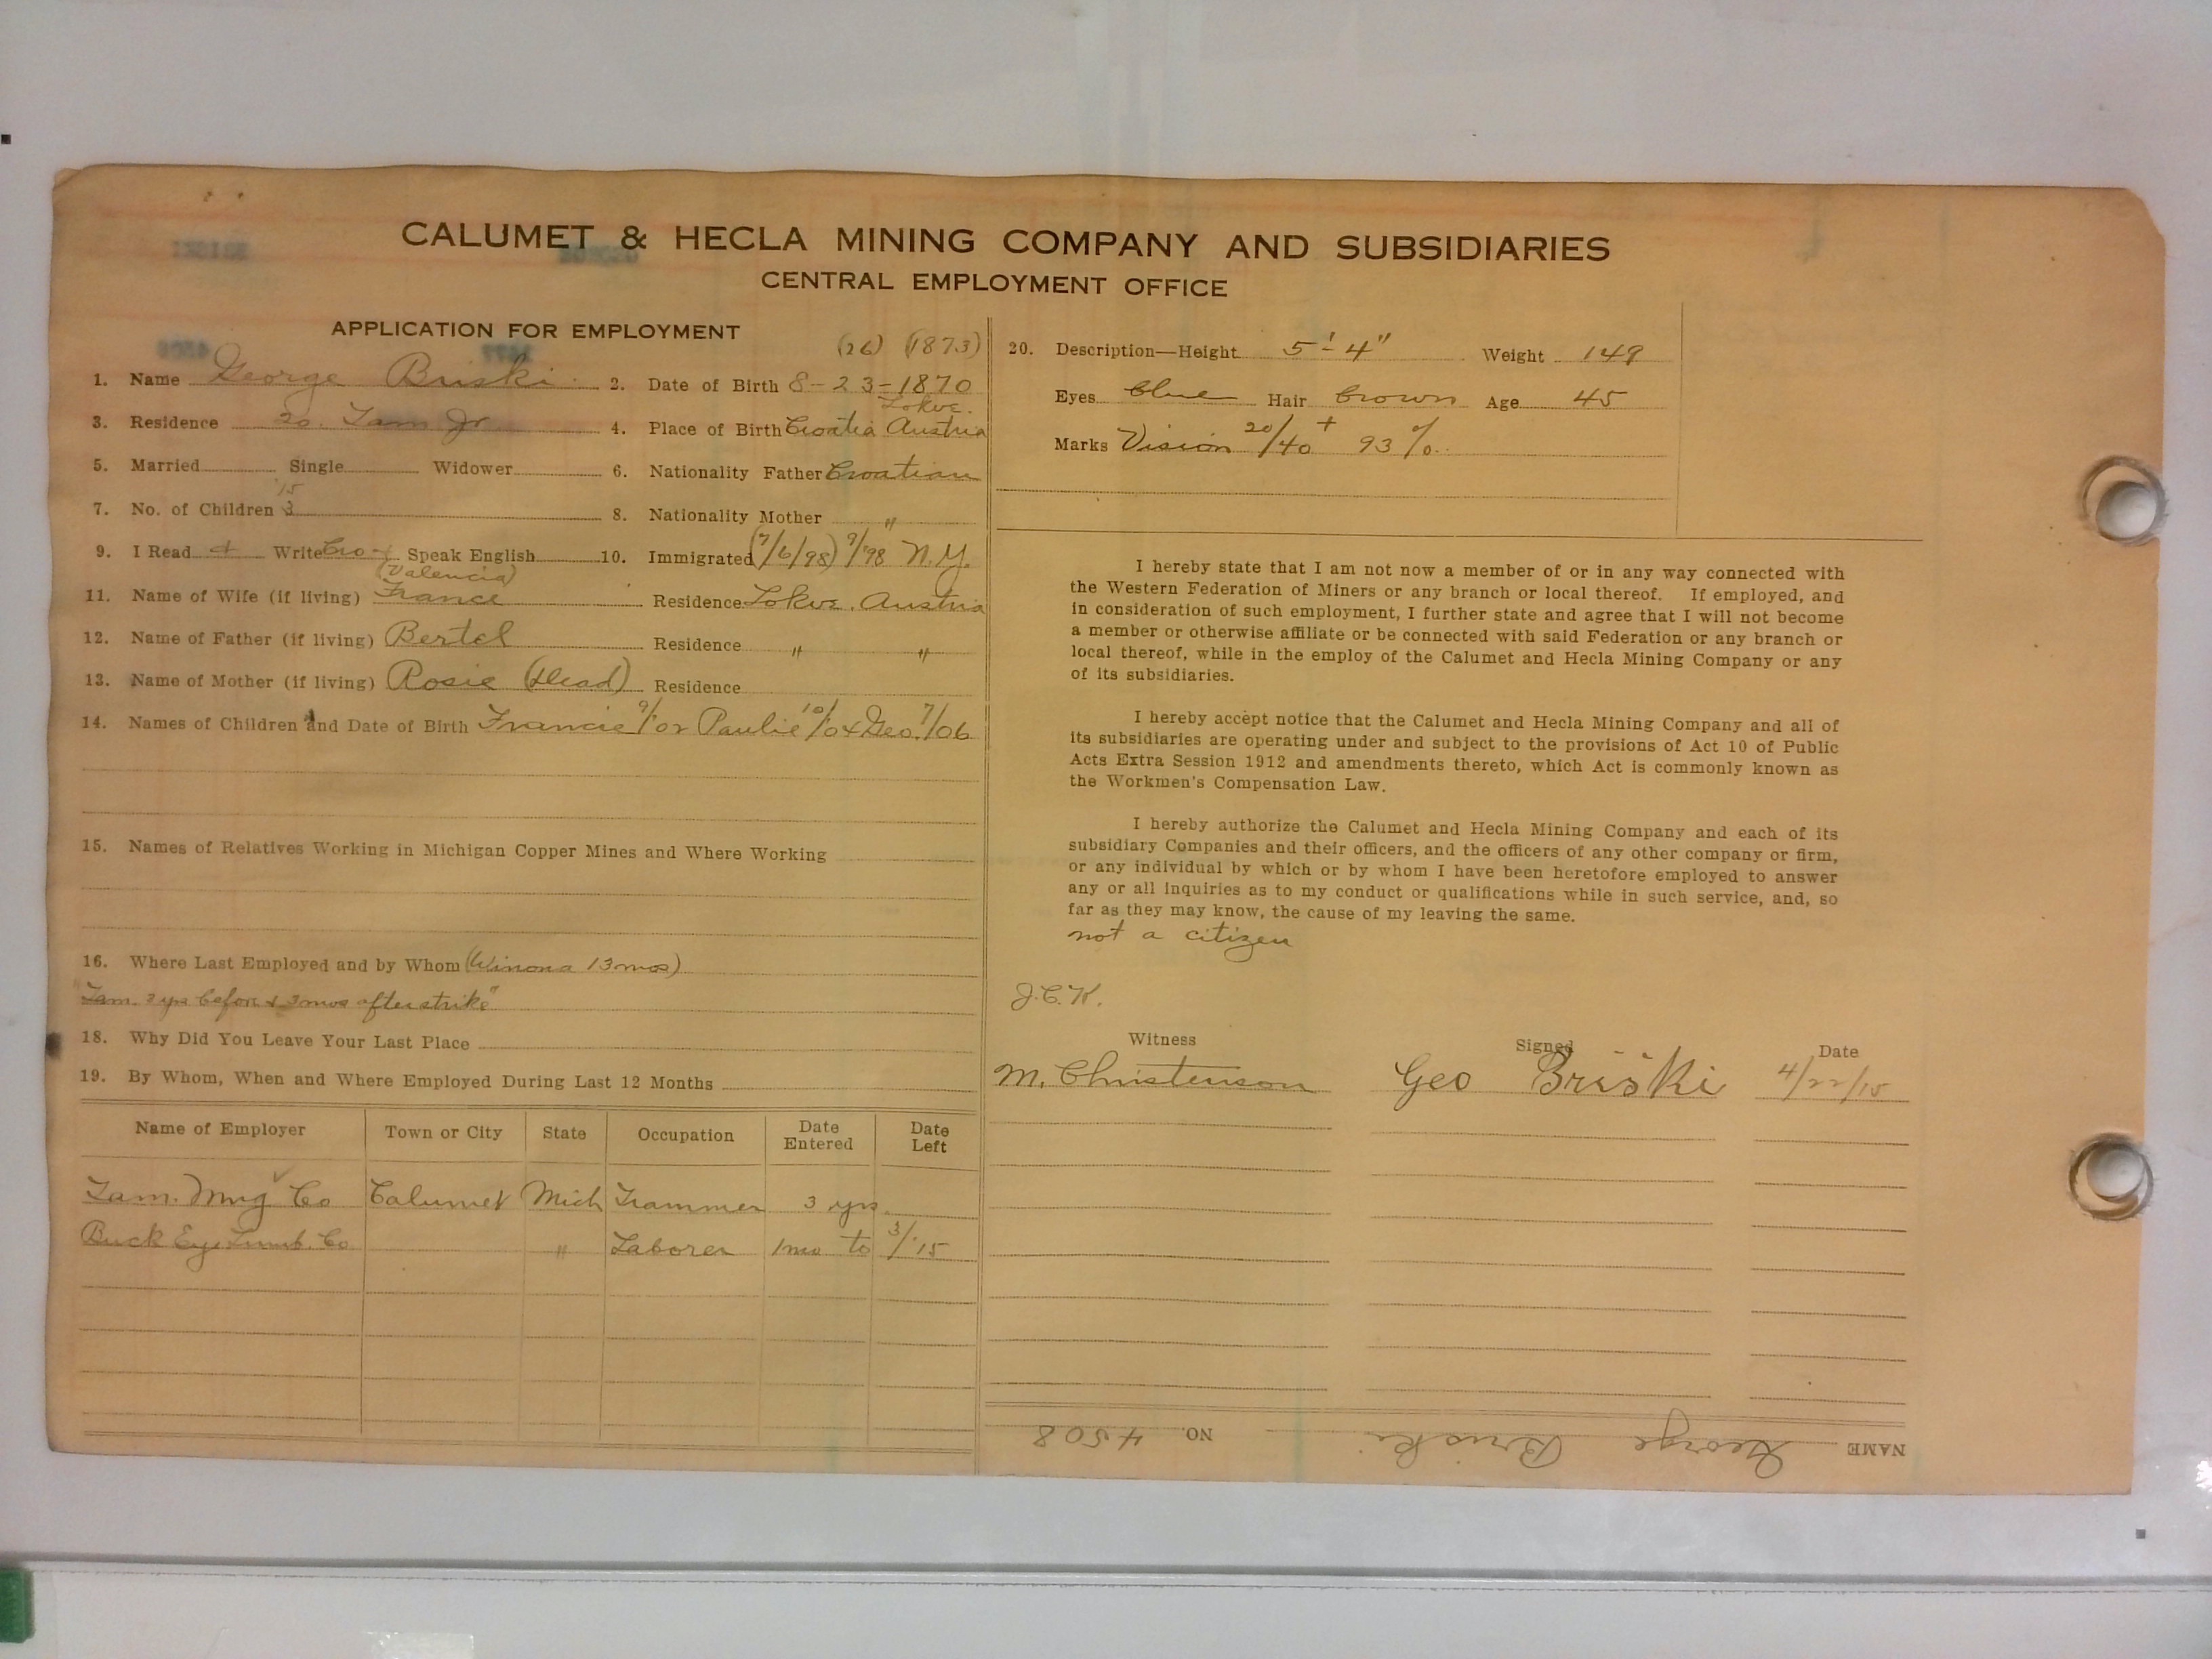 CALUMET & HECLA MINING COMPANY AND SUBSIDIARIES
CENTRAL EMPLOYMENT OFFICE
APPLICATION FOR EMPLOYMENT
(26) (1873)
1. Name George Briski 2. Date of Birth 8-23-1870
Lokve.
3. Residence 20. Tam Jr 4. Place of Birth Croatia Austria
5. Married Single Widower 6. Nationality Father Croatian
'15
7. No. of Children 3 8. Nationality Mother "
9. I Read + Write Cro - Speak English 10. Immigrated (7/6/98) 9/98 N.Y.
(Valencia)
11. Name of Wife (if living) France Residence Lokve. Austria
12. Name of Father (if living) Bertel Residence " "
13. Name of Mother (if living) Rosie (Dead) Residence
14. Names of Children and Date of Birth Francie 9/02 Paulie 10/04 Geo. 7/06
15. Names of Relatives Working in Michigan Copper Mines and Where Working
16. Where Last Employed and by Whom (Winona 13 mos)
Tam. 3 yrs before & 3 mos after strike"
18. Why Did You Leave Your Last Place
19. By Whom, When and Where Employed During Last 12 Months
Name of Employer Town or City State Occupation Date Entered Date Left
Tam. Mng Co Calumet Mich Trammer 3 yrs.
Buck Eye Lumb. Co " Laborer 1 mo to 3/'15
20. Description—Height 5'-4" Weight 149
Eyes blue Hair brown Age 45
Marks Vision 20/40 + 93%
I hereby state that I am not now a member of or in any way connected with
the Western Federation of Miners or any branch or local thereof. If employed, and
in consideration of such employment, I further state and agree that I will not become
a member or otherwise affiliate or be connected with said Federation or any branch or
local thereof, while in the employ of the Calumet and Hecla Mining Company or any
of its subsidiaries.
I hereby accept notice that the Calumet and Hecla Mining Company and all of
its subsidiaries are operating under and subject to the provisions of Act 10 of Public
Acts Extra Session 1912 and amendments thereto, which Act is commonly known as
the Workmen's Compensation Law.
I hereby authorize the Calumet and Hecla Mining Company and each of its
subsidiary Companies and their officers, and the officers of any other company or firm,
or any individual by which or by whom I have been heretofore employed to answer
any or all inquiries as to my conduct or qualifications while in such service, and, so
far as they may know, the cause of my leaving the same.
not a citizen
J.C.K.
Witness Signed Date
M. Christenson Geo Briski 4/22/15
NAME George Briski NO. 4508